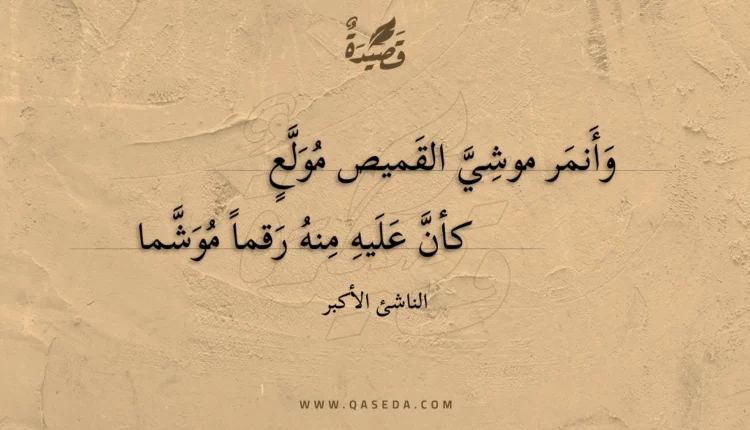 قَصِيدَةٌ
وَأَنمَر موشِيَّ القَميص مُوَلَّعٍ
كأنَّ عَلَيهِ مِنهُ رَقماً مُوَشَّما
الناشئ الأكبر
WWW.QASEDA.COM